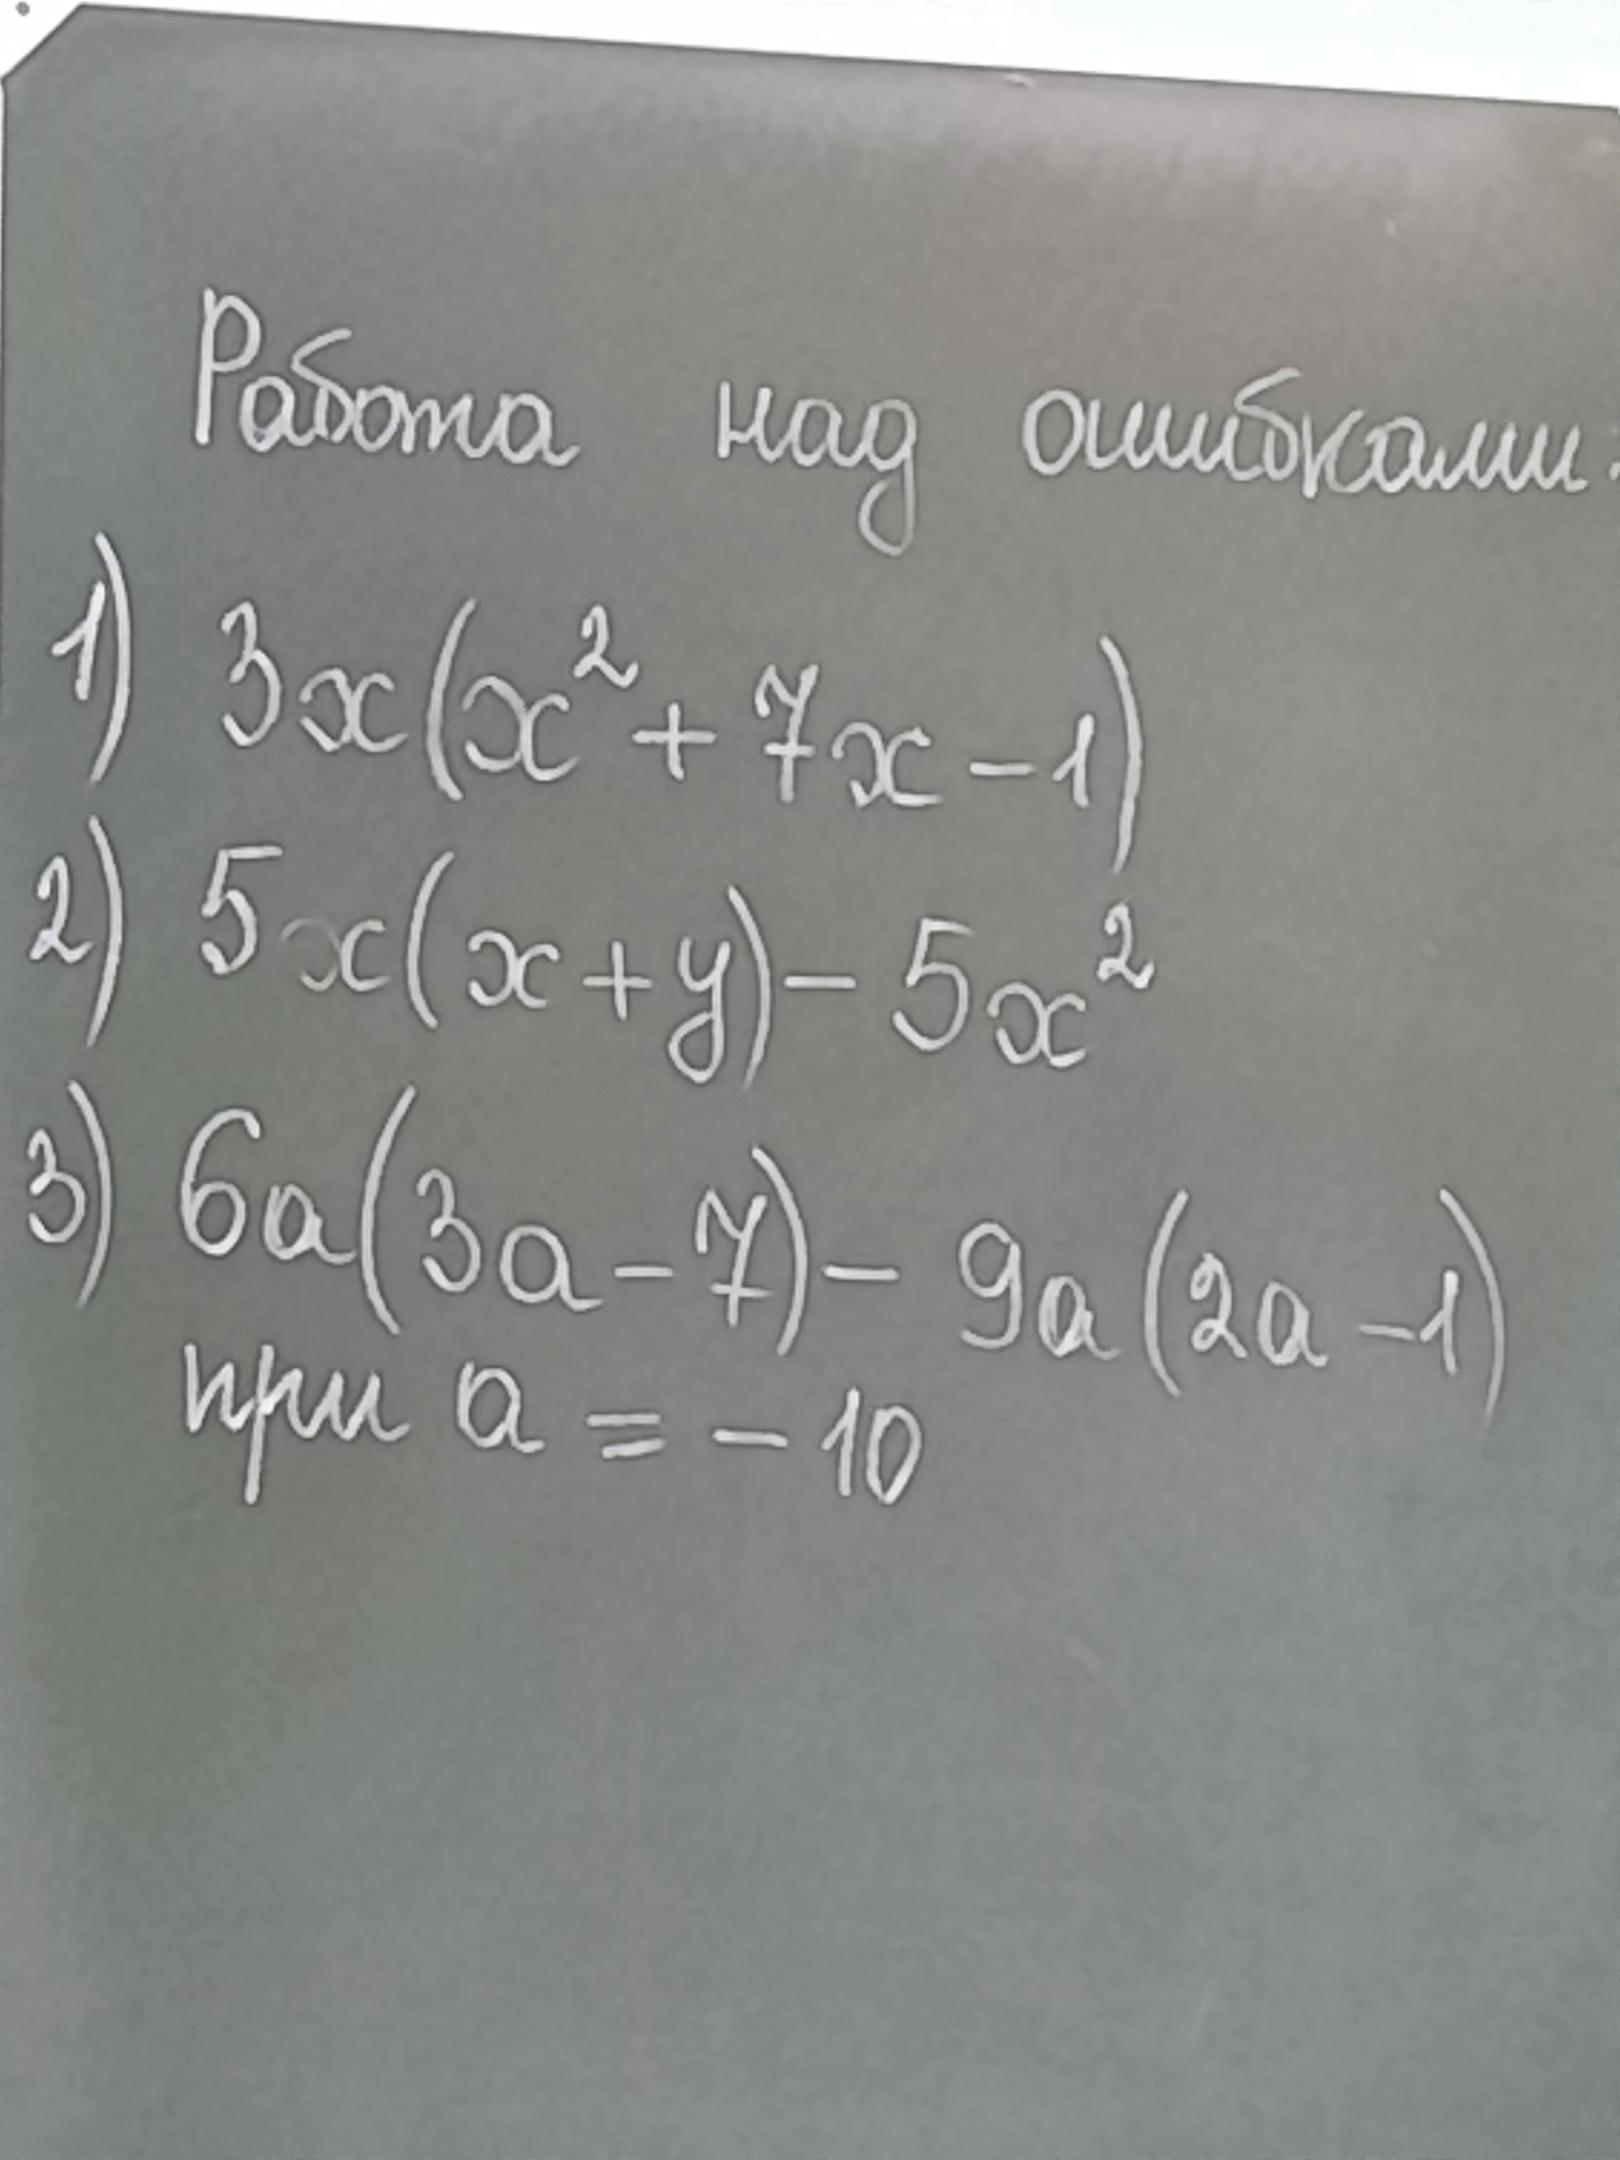 Работа над ошибками.
1) 3x(x² + 7x - 1)
2) 5x(x + y) - 5x²
3) 6a(3a - 7) - 9a(2a - 1)
при a = - 10